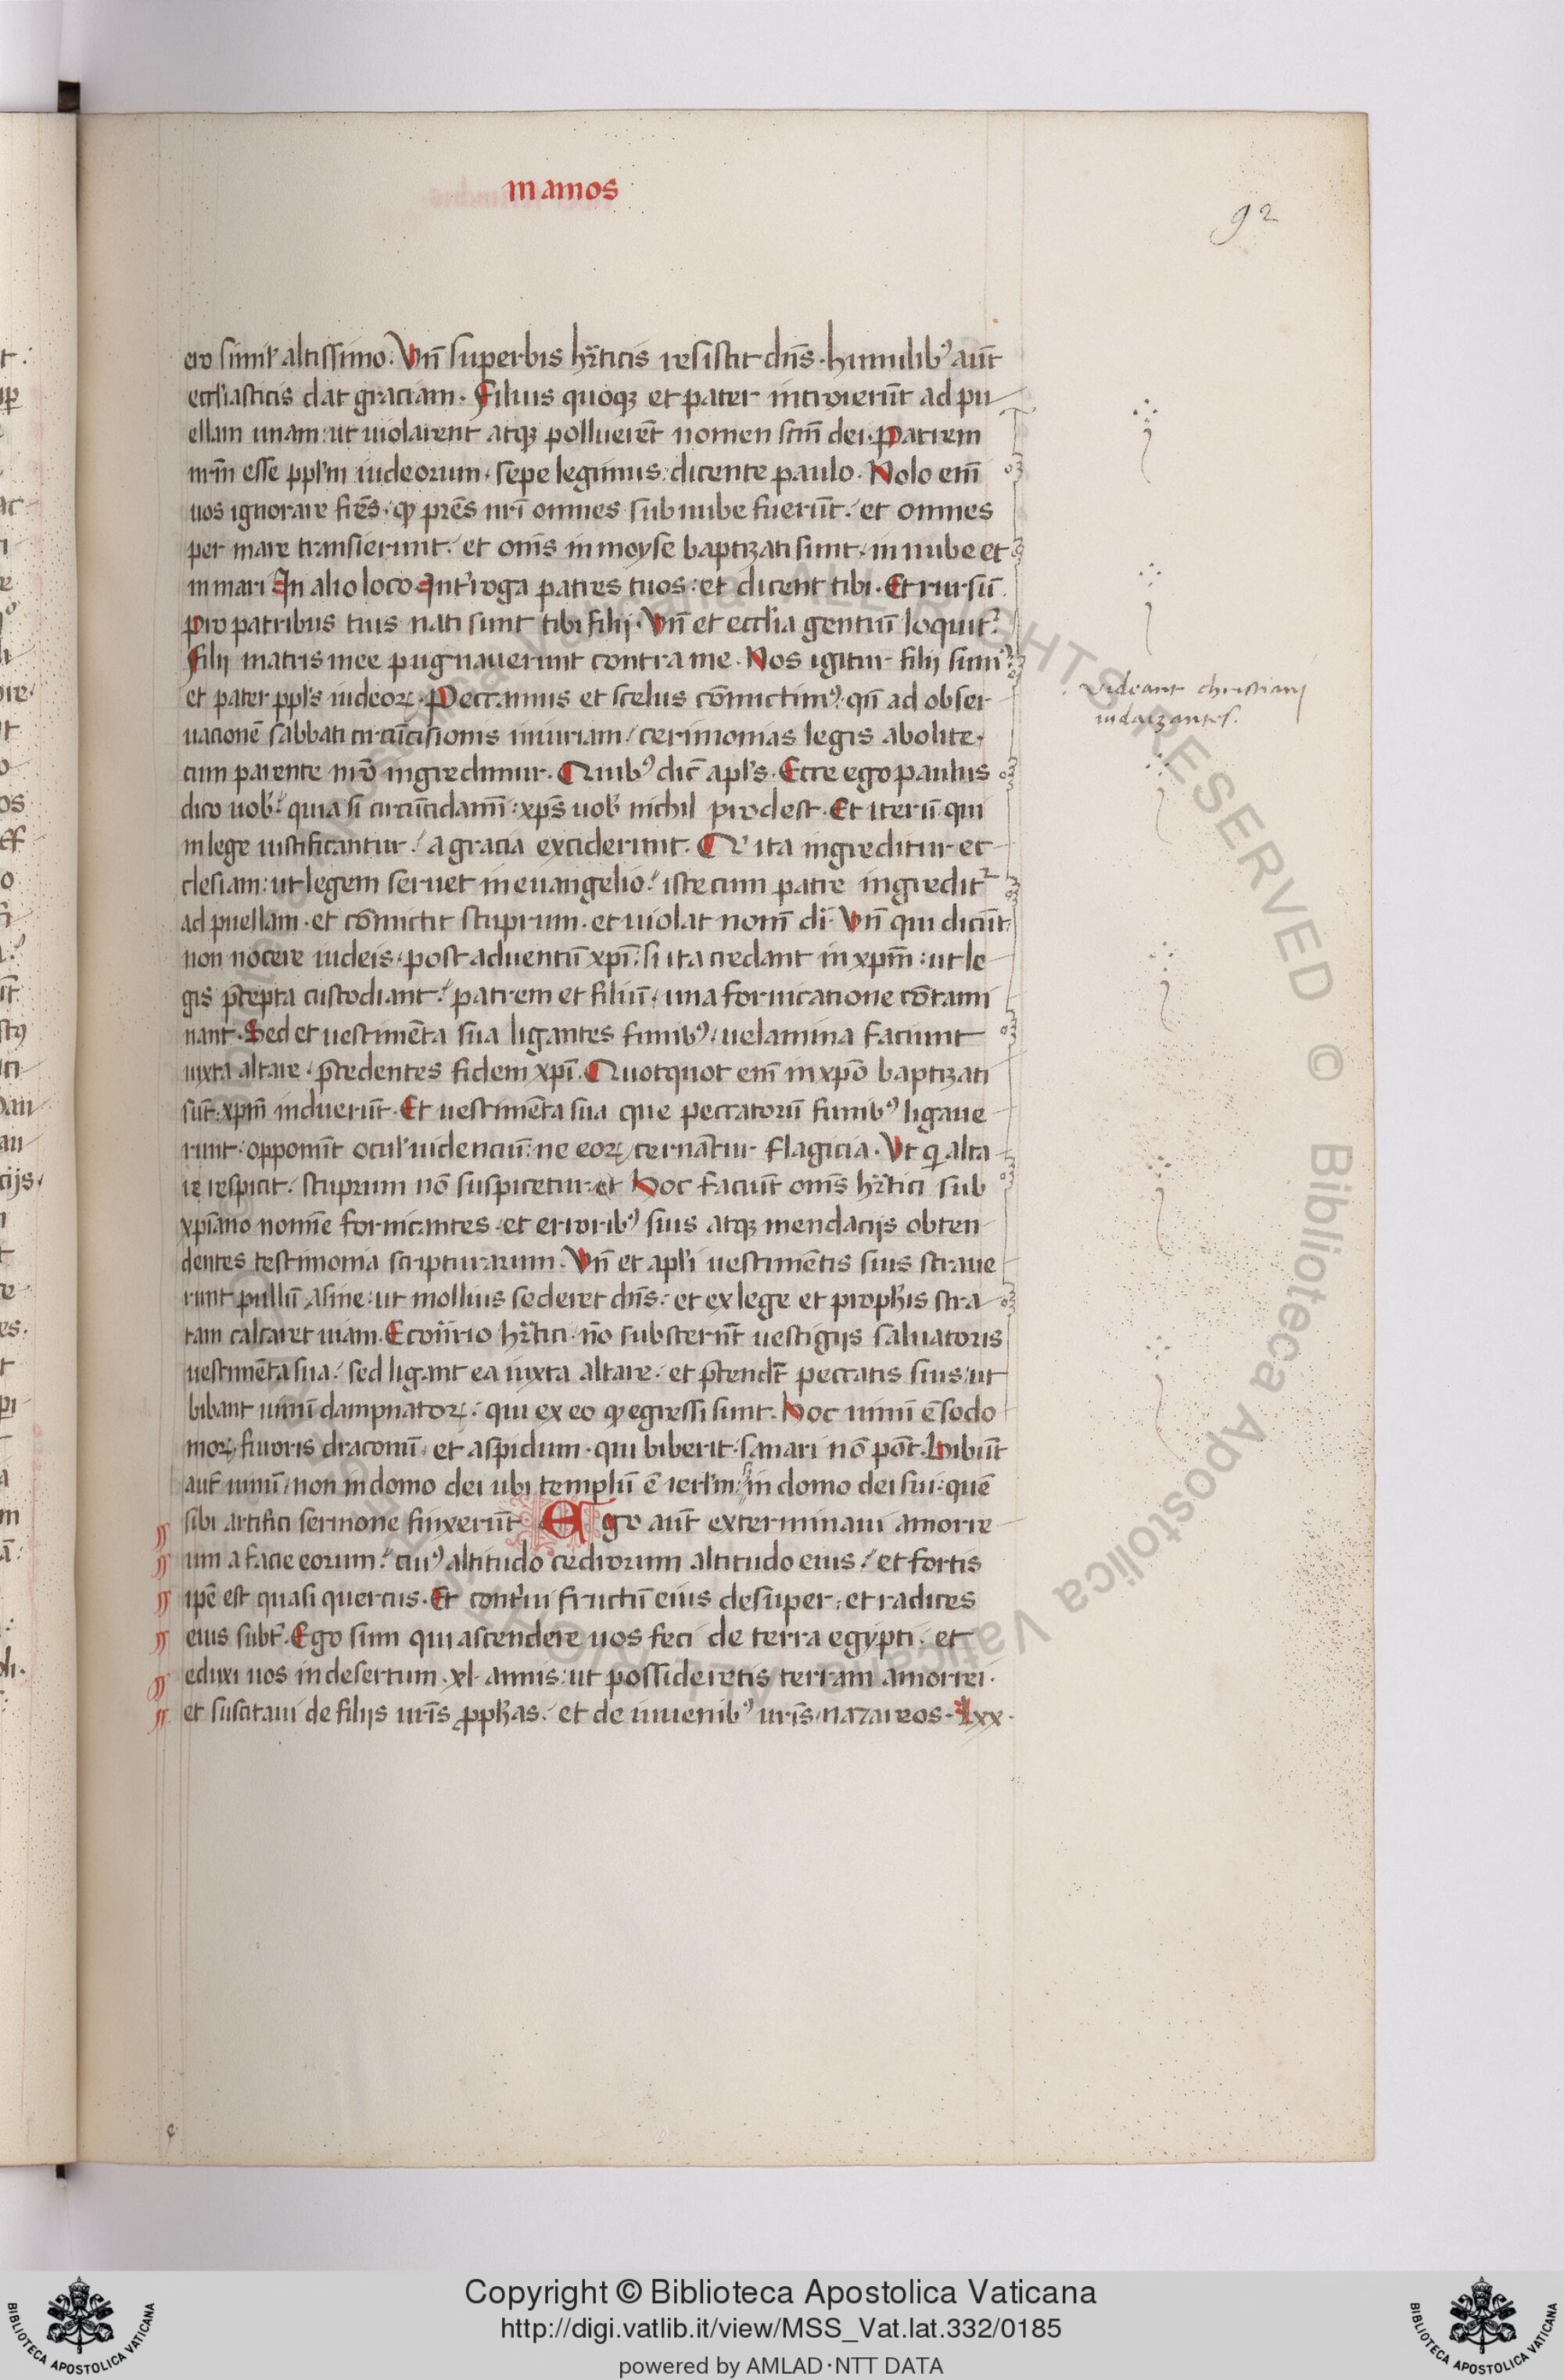 in amos
92
ero simil' altissimo. Vñ superbis hr̃ticis resistit dñs. humilib9 aũt
eccl'iasticis dat graciam. Filius quoqꝫ et pater introierũt ad pu
ellam unam: ut uiolarent atqꝫ polluerẽt nomen scm̃ dei. Patrem
nr̃m esse ppl'm iudeorum. sepe legimus: dicente paulo. Nolo em̃
uos ignorare fr̃es. qꝫ pr̃es nr̃i omnes sub nube fuerũt. et omnes
per mare transierunt. et om̃s in moyse baptizati sunt. in nube et
in mari In alio loco Int'roga patres tuos: et dicent tibi. Et rursũ.
pro patribus tuis nati sunt tibi filij. Vñ et eccl'ia gentiũ loquit'.
Filij matris mee pugnauerunt contra me. Nos igitur filij sum9.
et pater ppl's iudeoꝝ. Peccamus et scelus cõmictim9. qñ ad obser
uacionẽ sabbati circũcisionis iniuriam, cerimonias legis abolite.
cum parente nr̃o ingredimur. Quib9 dic̃ apl's. Ecce ego paulus
dico uob'. quia si circũcidam̃i: xp̃s uob' nichil prodest. Et iterũ. qui
in lege iustificantur. a gracia exciderunt. Qi ita ingreditur ec
clesiam: ut legem seruet in euangelio. iste cum patre ingredit'
ad puellam. et cõmictit stuprum. et uiolat nom̃ di. Vñ qui dicũt
non nocere iudeis. post aduentũ xp̃i: si ita credant in xp̃m: ut le
gis p̃cepta custodiant. patrem et filiũ, una fornicatione cõtami
nant. Sed et uestimẽta sua ligantes funib9, uelamina faciunt
iuxta altare. p̃tedentes fidem xp̃i. Quotquot em̃ in xp̃o baptizati
sũt. xp̃m induerũt. Et uestimẽta sua que peccatorũ funib9 ligaue
runt. opponũt ocul' uidenciũ: ne eoꝝ, cernãtur flagicia. Vt q̃ alta
re respicit. stuprum nõ suspicetur et Hoc faciũt om̃s hr̃tici sub
xp̃iano nomĩe fornicantes. et erroribꝰ suis atqꝫ mendacijs obten
dentes testimonia scripturarum. Vñ et apl'i uestimẽtis suis straue
runt pullũ asine: ut mollius sederet dñs. et ex lege et proph'is stra
tam calcaret uiam. Econtr̃rio hr̃tici. nõ substernũt uestigijs saluatoris
uestimẽta sua. sed ligant ea iuxta altare. et p̃tendũt peccatis suis, ut
bibant uinũ dampnatoꝝ. qui ex eo qꝫ egressi sunt. Hoc uinũ ẽ sodo
moꝝ, furoris draconũ. et aspidum. qui biberit. sanari nõ põt. Bibũt
aut̃ uinũ, non in domo dei ubi templũ ẽ ierl'm. in domo dei sui. quẽ
sibi artifici sermone finxerũt Ego aũt exterminaui amorre
um a facie eorum. cui9 altitudo cedrorum altitudo eius. et fortis
ipẽ est quasi quercus. Et contriui fructũ eius desuper, et radices
eius subt'. Ego sum qui ascendere uos feci de terra egypti. et
eduxi uos in desertum. xl. annis. ut possideretis terram amorrei.
et suscitaui de filijs ur̃is ꝓph'as. et de iuuenib9 ur̃is, nazareos. Lxx.
Videant christiani
iudaizantes.
ALL RIGHTS RESERVED © Biblioteca Apostolica Vaticana
Copyright © Biblioteca Apostolica Vaticana
http://digi.vatlib.it/view/MSS_Vat.lat.332/0185
powered by AMLAD·NTT DATA
BIBLIOTECA APOSTOLICA VATICANA
BIBLIOTECA APOSTOLICA VATICANA